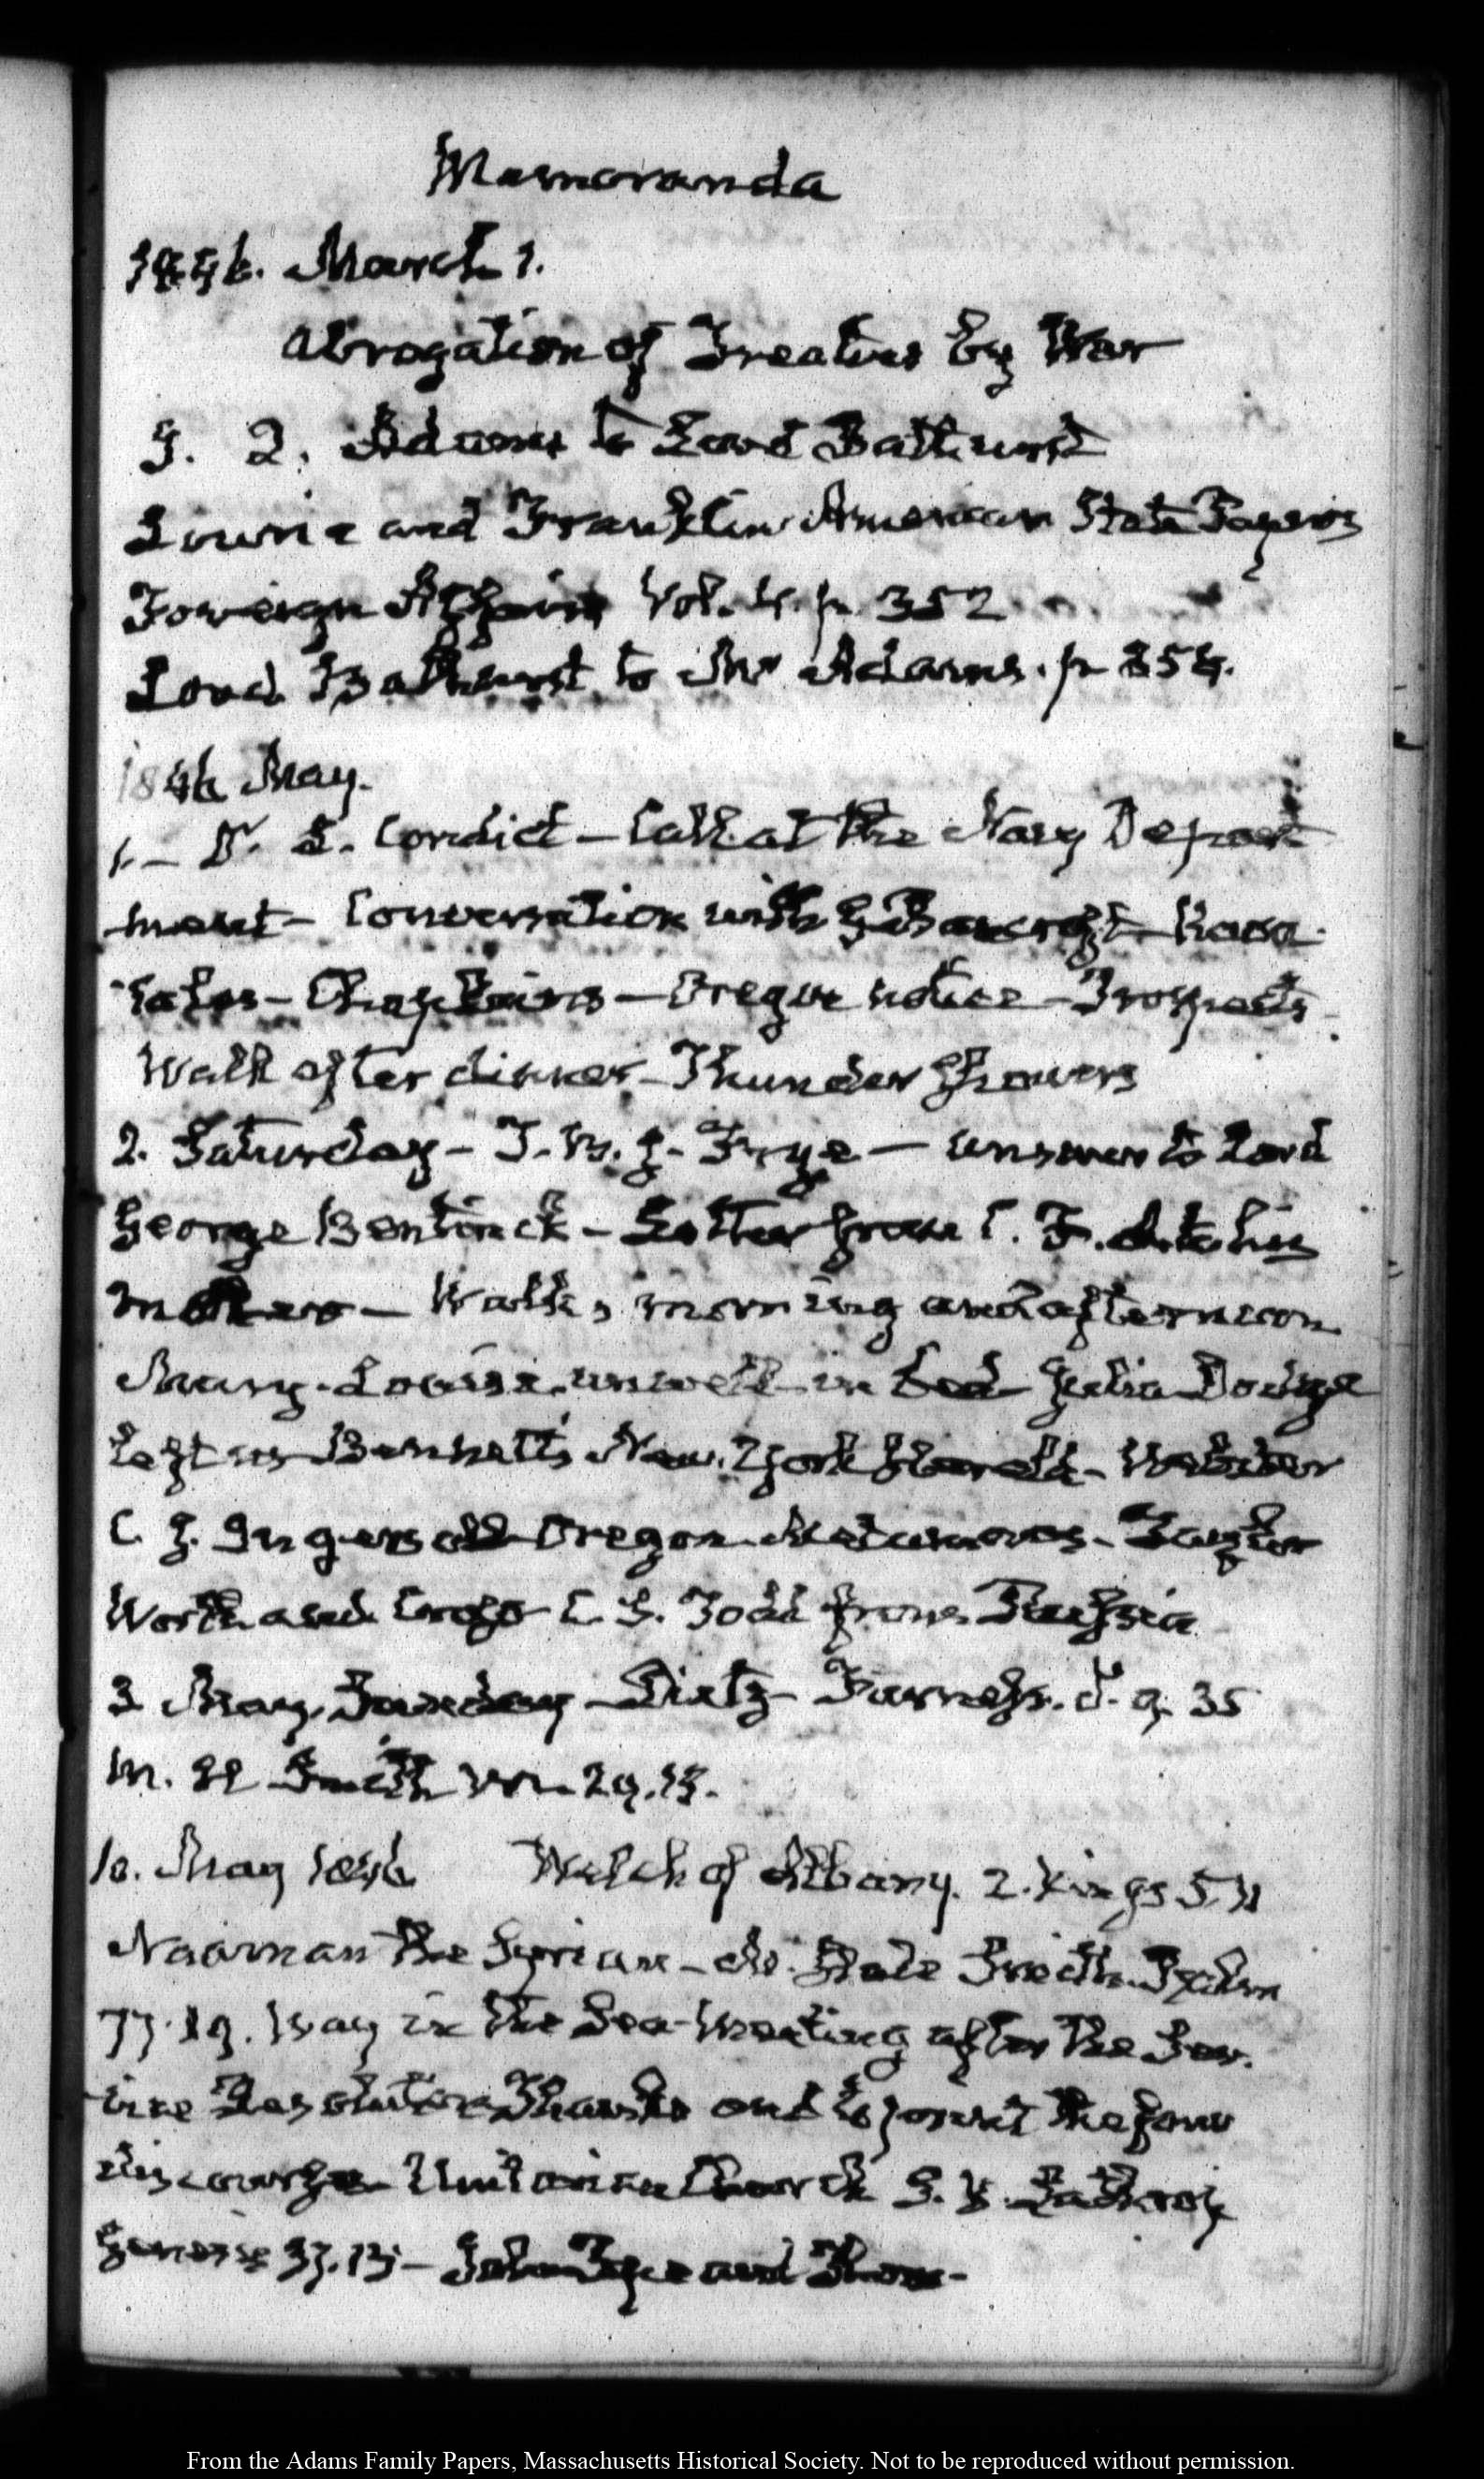 Memoranda
1846. March 1.
Abrogation of Treaties by War
J. Q. Adams to Lord Bathurst
Lowrie and Franklin American State Papers
Foreign Affairs Vol. 4. p. 352
Lord Bathurst to Mr Adams. p 354.
1846 May.
1.— Dr. L. Condict — Call at the Navy Depart
ment — Conversation with G Bancroft —
Chaplains — Oregon notice — Prospects
Walk after dinner — Thunder Showers
2. Saturday — T. B. J. Frye — answer to Lord
George Bentinck — Letter from C. F. A. to his
mother — Walks, morning and afternoon
Mary-Louisa unwell in bed Julia Dodge
left us Bennett's New York Herald — Webster
C. J. Ingersoll Oregon Matamoras — Taylor
Worth and C. S. Todd from Russia
3 May. Sunday — Furness. 35
m. Smith 29.18.
10. May 1846 Welch of Albany. 2. Kings 5. 11
Naaman the Syrian — Slade Smith Psalm
77.19. Way in the Sea Meeting after the Ser.
vice Resolution Thanks and to print the four
discourses Unitarian Church S. K. Lothrop
Genesis 37.13 — John Frye and Thos.
From the Adams Family Papers, Massachusetts Historical Society. Not to be reproduced without permission.